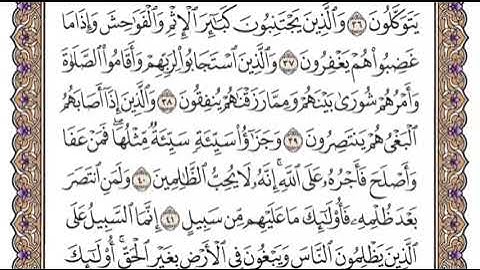 يَتَوَكَّلُونَ ٣٦ وَالَّذِينَ يَجْتَنِبُونَ كَبَائِرَ الْإِثْمِ وَالْفَوَاحِشَ وَإِذَا مَا
غَضِبُوا هُمْ يَغْفِرُونَ ٣٧ وَالَّذِينَ اسْتَجَابُوا لِرَبِّهِمْ وَأَقَامُوا الصَّلَاةَ
وَأَمْرُهُمْ شُورَىٰ بَيْنَهُمْ وَمِمَّا رَزَقْنَاهُمْ يُنفِقُونَ ٣٨ وَالَّذِينَ إِذَا أَصَابَهُمُ
الْبَغْيُ هُمْ يَنتَصِرُونَ ٣٩ وَجَزَاؤُا سَيِّئَةٍ سَيِّئَةٌ مِّثْلُهَا ۖ فَمَنْ عَفَا
وَأَصْلَحَ فَأَجْرُهُ عَلَى اللَّهِ ۚ إِنَّهُ لَا يُحِبُّ الظَّالِمِينَ ٤٠ وَلَمَنِ انتَصَرَ
بَعْدَ ظُلْمِهِ فَأُولَٰئِكَ مَا عَلَيْهِم مِّن سَبِيلٍ ٤١ إِنَّمَا السَّبِيلُ عَلَى
الَّذِينَ يَظْلِمُونَ النَّاسَ وَيَبْغُونَ فِي الْأَرْضِ بِغَيْرِ الْحَقِّ ۚ أُولَٰئِكَ